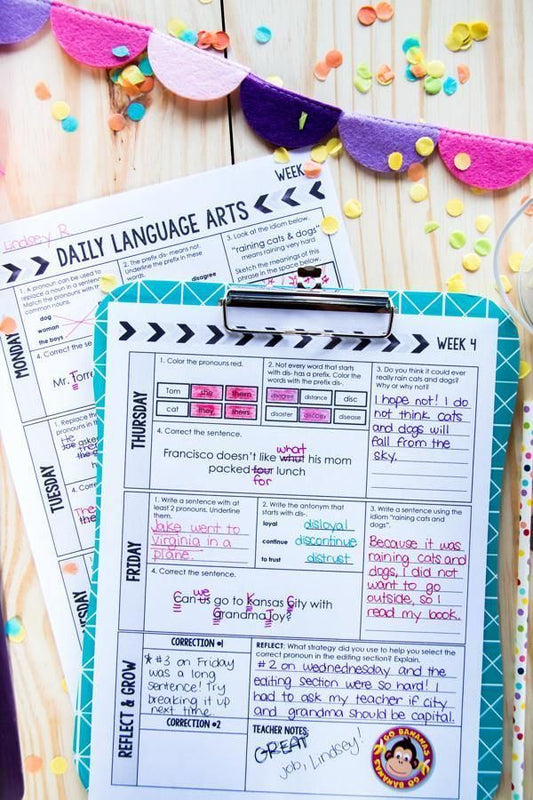 WEEK
Lindsey R.
DAILY LANGUAGE ARTS
MONDAY
1. A pronoun can be used to
replace a noun in a sentence.
Match the pronouns with the
common nouns.
dog
woman
boys
2. The prefix dis- means not.
Underline the prefix in these
words.
disagree
3. Look at the idiom below.
"raining cats & dogs"
means raining very hard
Sketch the meaning of this
phrase in the space below.
4. Correct the se
Mr. Torre
TUESDAY
1. Replace the
pronouns in
He
4. Correc
The
WEEK 4
THURSDAY
1. Color the pronouns red.
Tom she them
cat they theirs
2. Not every word that starts
with dis- has a prefix. Color the
words with the prefix dis-.
disagree distance disc
disaster discopy disease
3. Do you think it could ever
really rain cats and dogs?
Why or why not?
I hope not! I do
not think cats
and dogs will
fall from the
sky.
4. Correct the sentence.
what
Francisco doesn't like whut his mom
packed four lunch
for
FRIDAY
1. Write a sentence with at
least 2 pronouns. Underline
them.
Jake went to
Virginia in a
plane.
2. Write the antonym that
starts with dis-.
loyal disloyal
continue discontinue
to trust distrust
3. Write a sentence using the
idiom "raining cats and
dogs".
Because it was
raining cats and
dogs, I did not
want to go
outside, so I
read my book.
4. Correct the sentence.
we
Can us go to Kansas City with
Grandma Joy?
REFLECT & GROW
CORRECTION #1
#3 on Friday
was a long
sentence! Try
breaking it up
next time.
CORRECTION #2
REFLECT: What strategy did you use to help you select the
correct pronoun in the editing section? Explain.
#2 on wednednesday and the
editing section were so hard! I
had to ask my teacher if city
and grandma should be capital.
TEACHER NOTES:
GREAT
job, Lindsey!
GO BANANAS
GO BANANAS